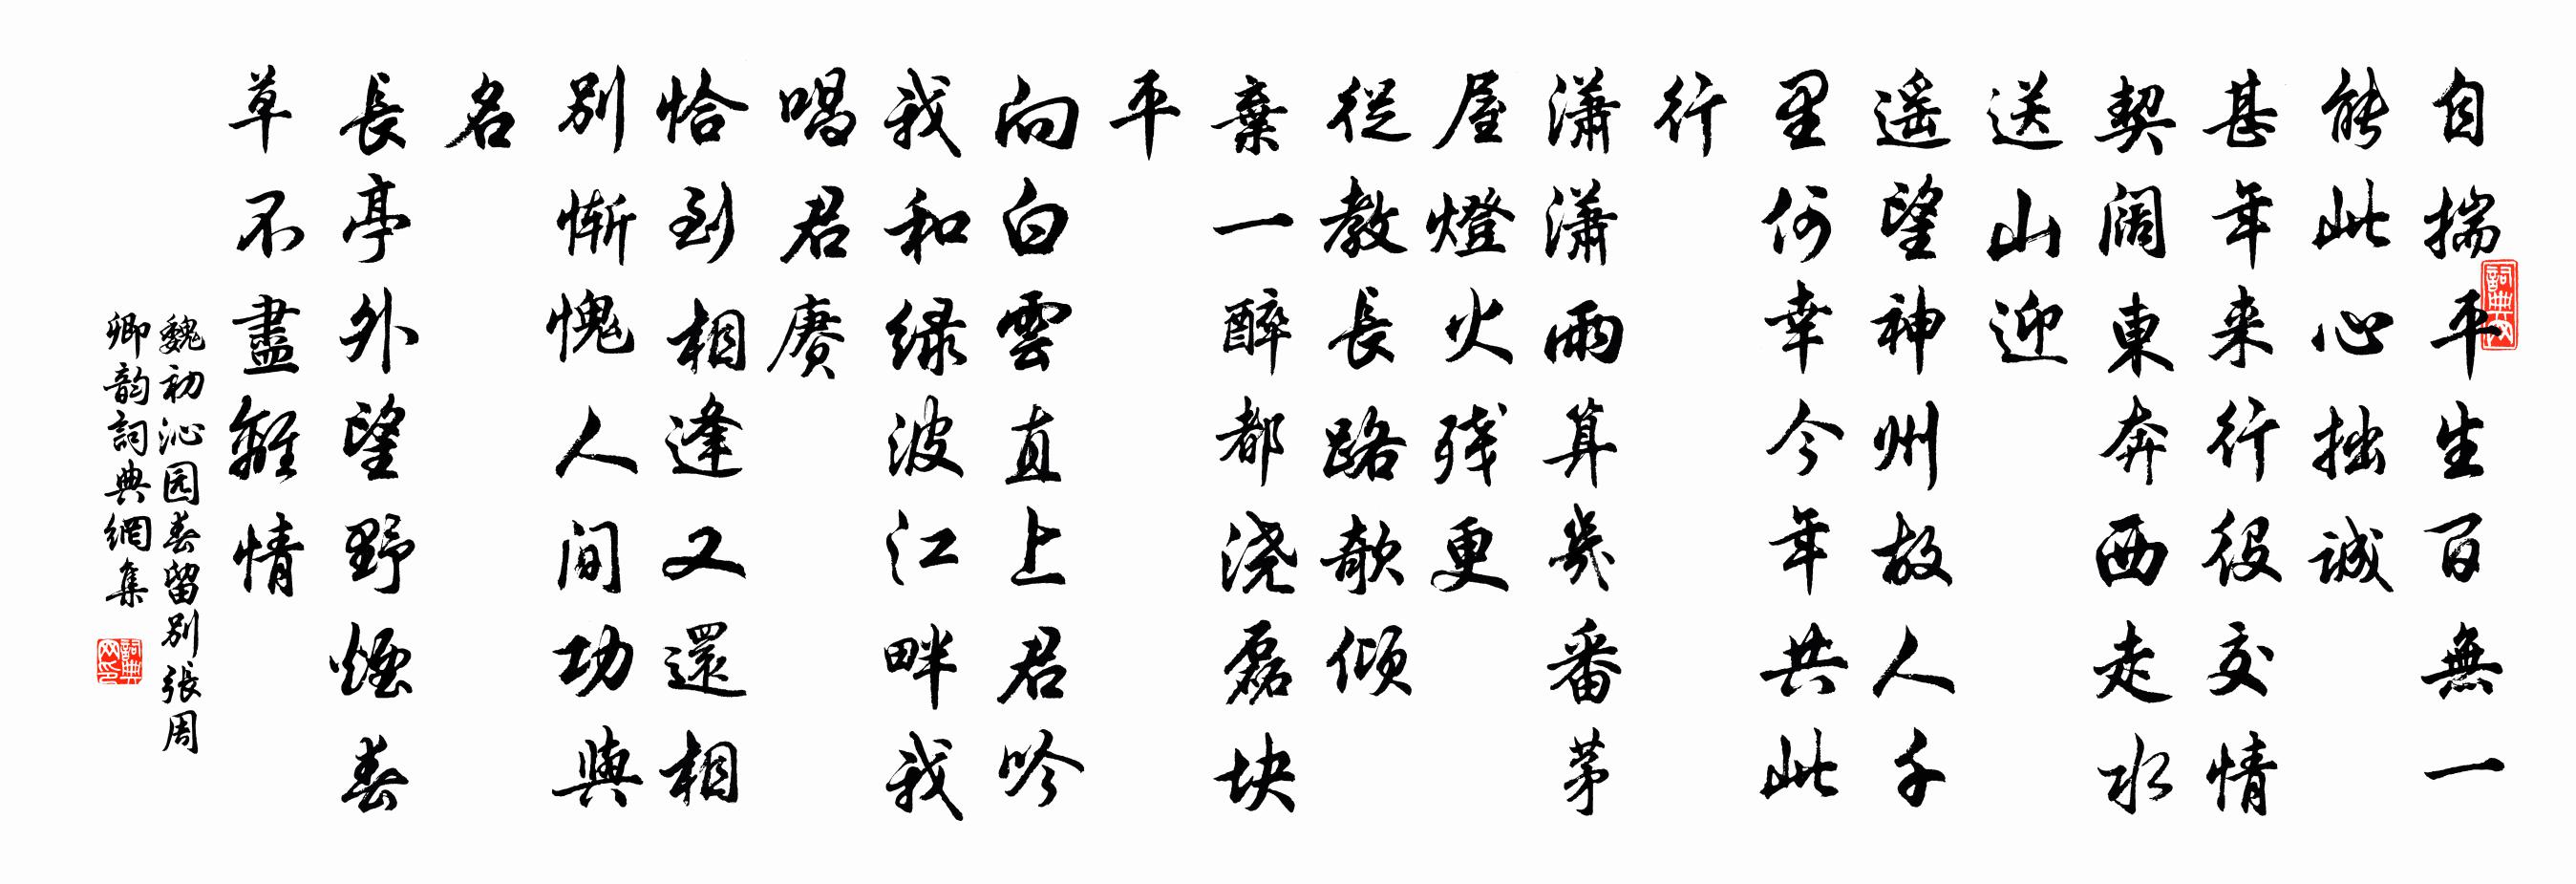 自揣平生百無一
能此心拙诚
甚年来行役交情
契阔東奔西走水
送山迎
遥望神州故人千
里何幸今年共此
行
潇潇雨算幾番茅
屋燈火残更
從教長路欹倾
棄一醉都浇磊块
平
向白雲直上君吟
我和绿波江畔我
唱君赓
恰到相逢又還相
别惭愧人间功與
名
長亭外望野煙春
草不盡離情
魏初沁园春留别張周
卿韵詞典網集
詞典网
詞典网印